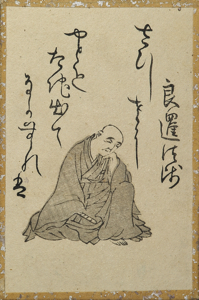 良暹法師
さひしさに
やとを
たち出て
なかむれは